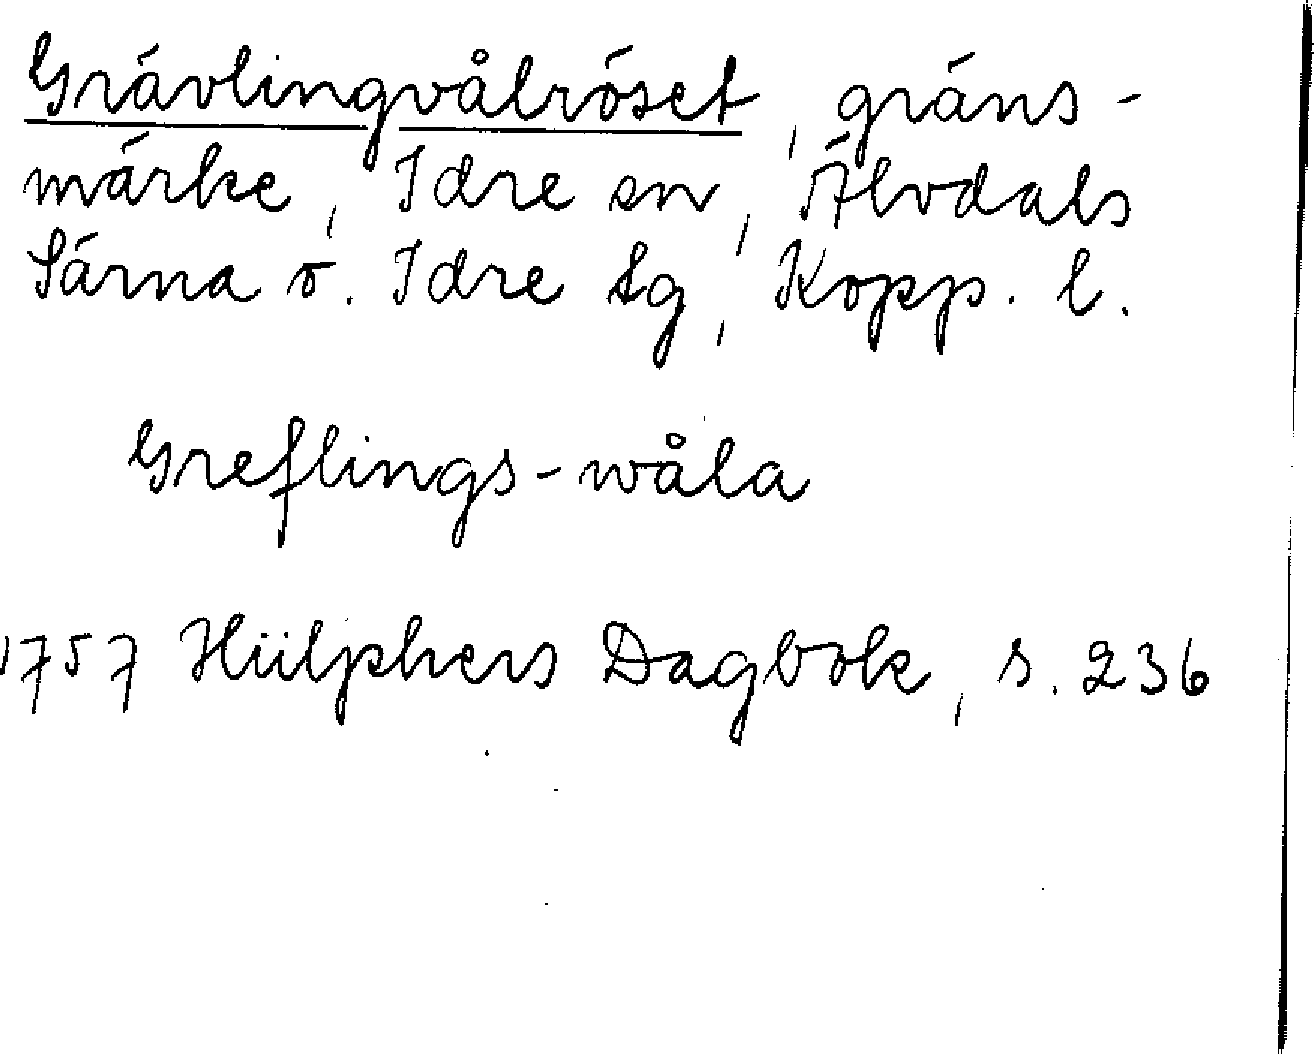 Grävlingvålröset, gräns-
märke, Idre sn, Älvdals
Särna o. Idre tg, Kopp. l.
Greflings-wåla
1757 Hülphers Dagbok, s. 236